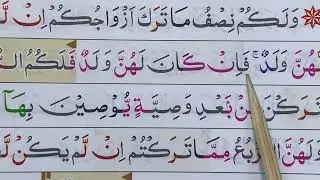 وَلَكُمْ نِصْفُ مَا تَرَكَ اَزْوَاجُكُمْ اِنْ
لَهُنَّ وَلَدٌ ۚ فَاِنْ كَانَ لَهُنَّ وَلَدٌ فَلَكُمُ
تَرَكْنَ مِنْۢ بَعْدِ وَصِيَّةٍ يُّوْصِيْنَ بِهَاۤ
وَلَهُنَّ الرُّبُعُ مِمَّا تَرَكْتُمْ اِنْ لَّمْ يَكُنْ